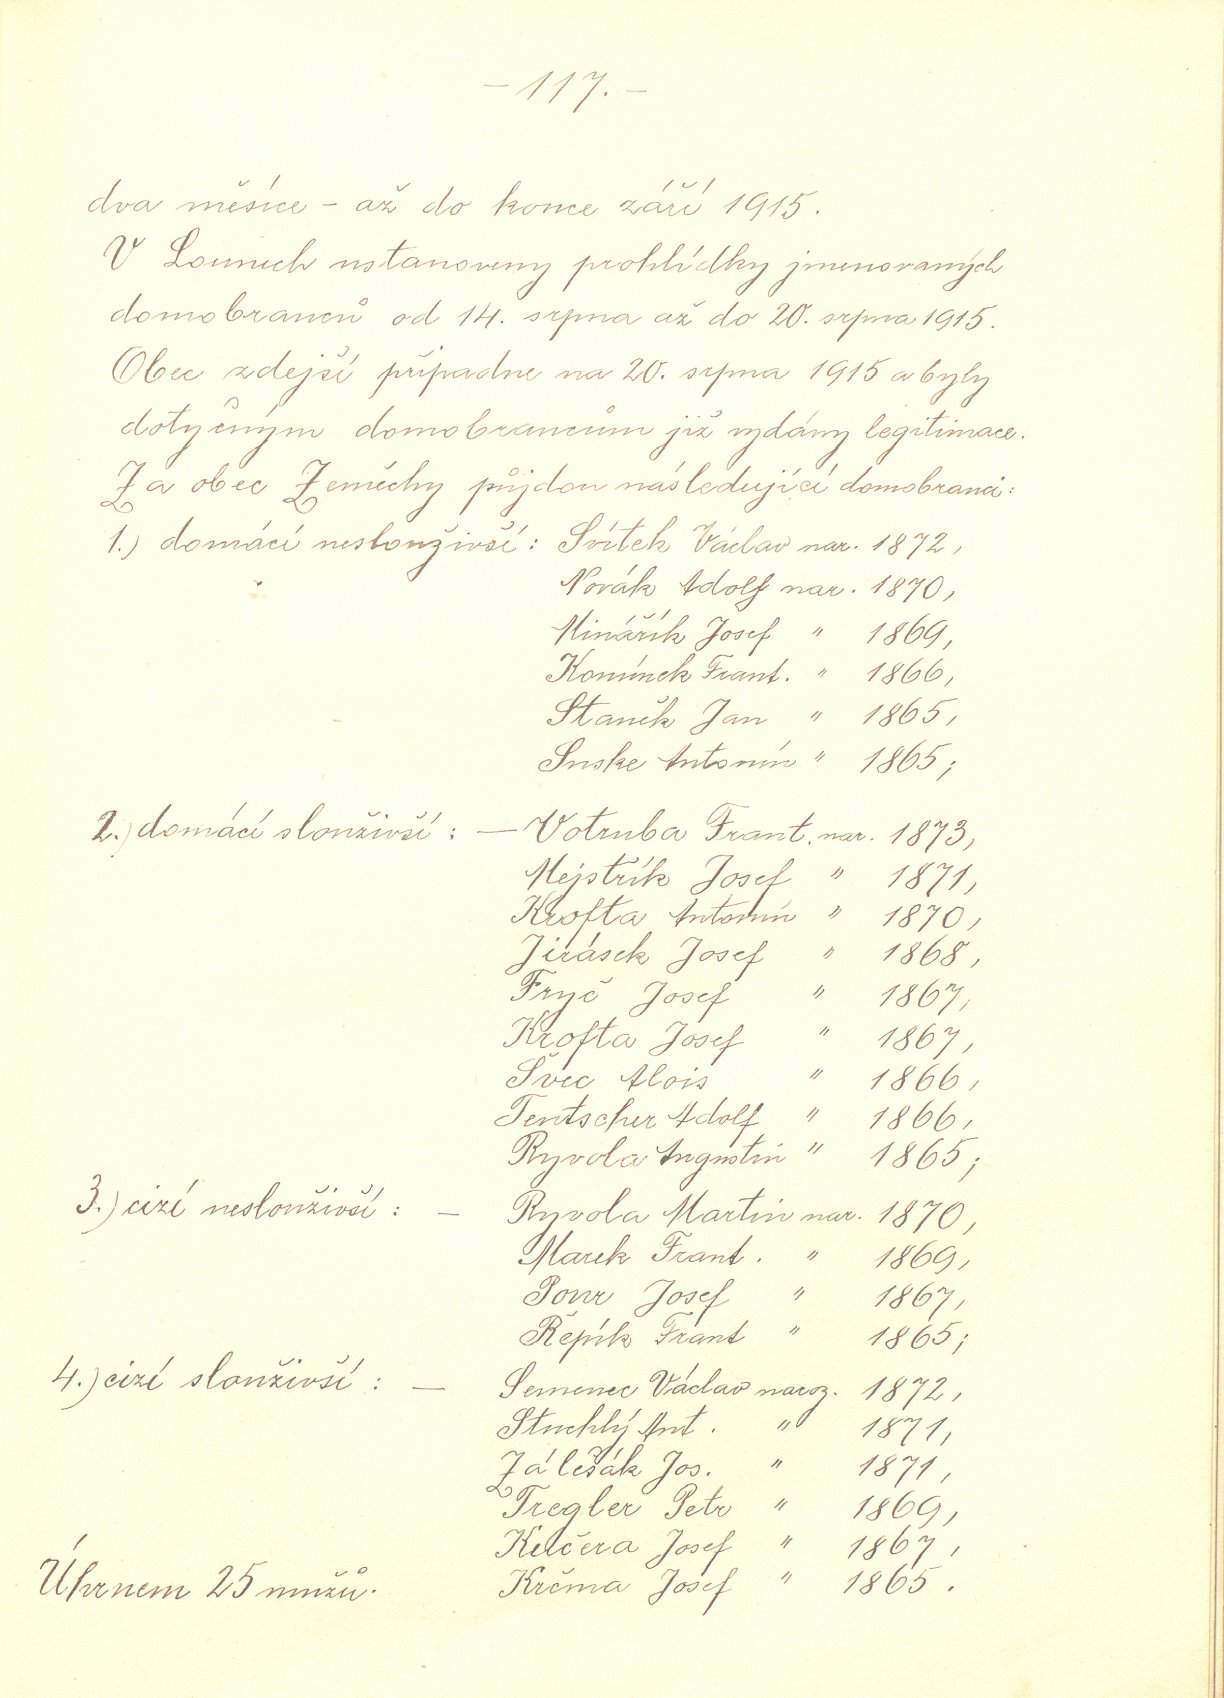 – 117. –
dva měsíce – až do konce září 1915.
V Lounech ustanoveny prohlídky jmenovaných
domobranců od 14. srpna až do 20. srpna 1915.
Obec zdejší připadne na 20. srpna 1915 a byly
dotyčným domobrancům již vydány legitimace.
Za obec Zeměchy půjdou následující domobranci:
1.) domácí nesloužívší: Svítek Václav nar. 1872,
Novák Adolf nar. 1870,
Minářík Josef " 1869,
Komínek Frant. " 1866,
Staněk Jan " 1865,
Suske Antonín " 1865;
2.) domácí sloužívší: – Votruba Frant. nar. 1873,
Mejstřík Josef " 1871,
Krofta Antonín " 1870,
Jirásek Josef " 1868,
Fryč Josef " 1867,
Krofta Josef " 1867,
Švec Alois " 1866,
Tentscher Adolf " 1866,
Ryvola Augustin " 1865;
3.) cizí nesloužívší: – Ryvola Martin nar. 1870,
Marek Frant. " 1869,
Pour Josef " 1867,
Řepík Frant " 1865;
4.) cizí sloužívší: – Semenec Václav naroz. 1872,
Stuchlý Ant. " 1871,
Zálešák Jos. " 1871,
Tregler Petr " 1869,
Kučera Josef " 1867,
Úhrnem 25 mužů. Krčma Josef " 1865.